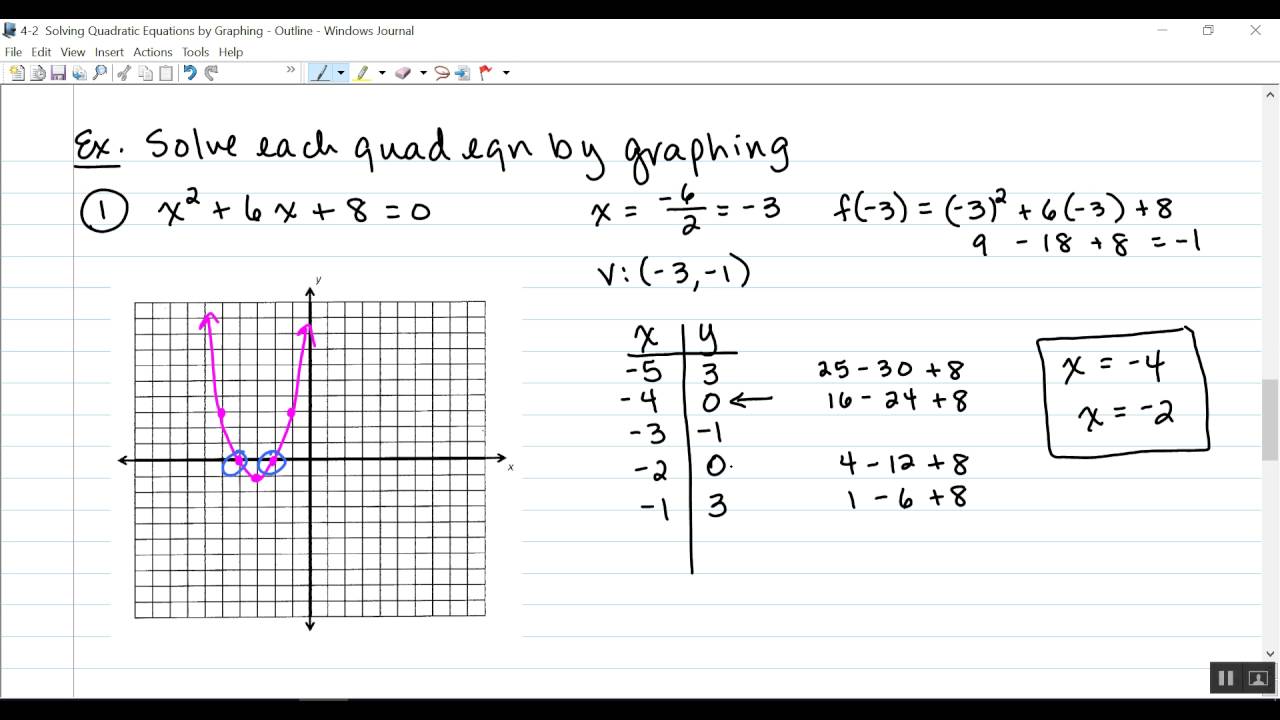 4-2 Solving Quadratic Equations by Graphing - Outline - Windows Journal
File Edit View Insert Actions Tools Help
»
Ex. Solve each quad eqn by graphing
① x² + 6x + 8 = 0
x = -6/2 = -3
f(-3) = (-3)² + 6(-3) + 8
9 - 18 + 8 = -1
V: (-3, -1)
y
x
x | y
-5 | 3 25 - 30 + 8
-4 | 0 ← 16 - 24 + 8
-3 | -1
-2 | 0 4 - 12 + 8
-1 | 3 1 - 6 + 8
x = -4
x = -2